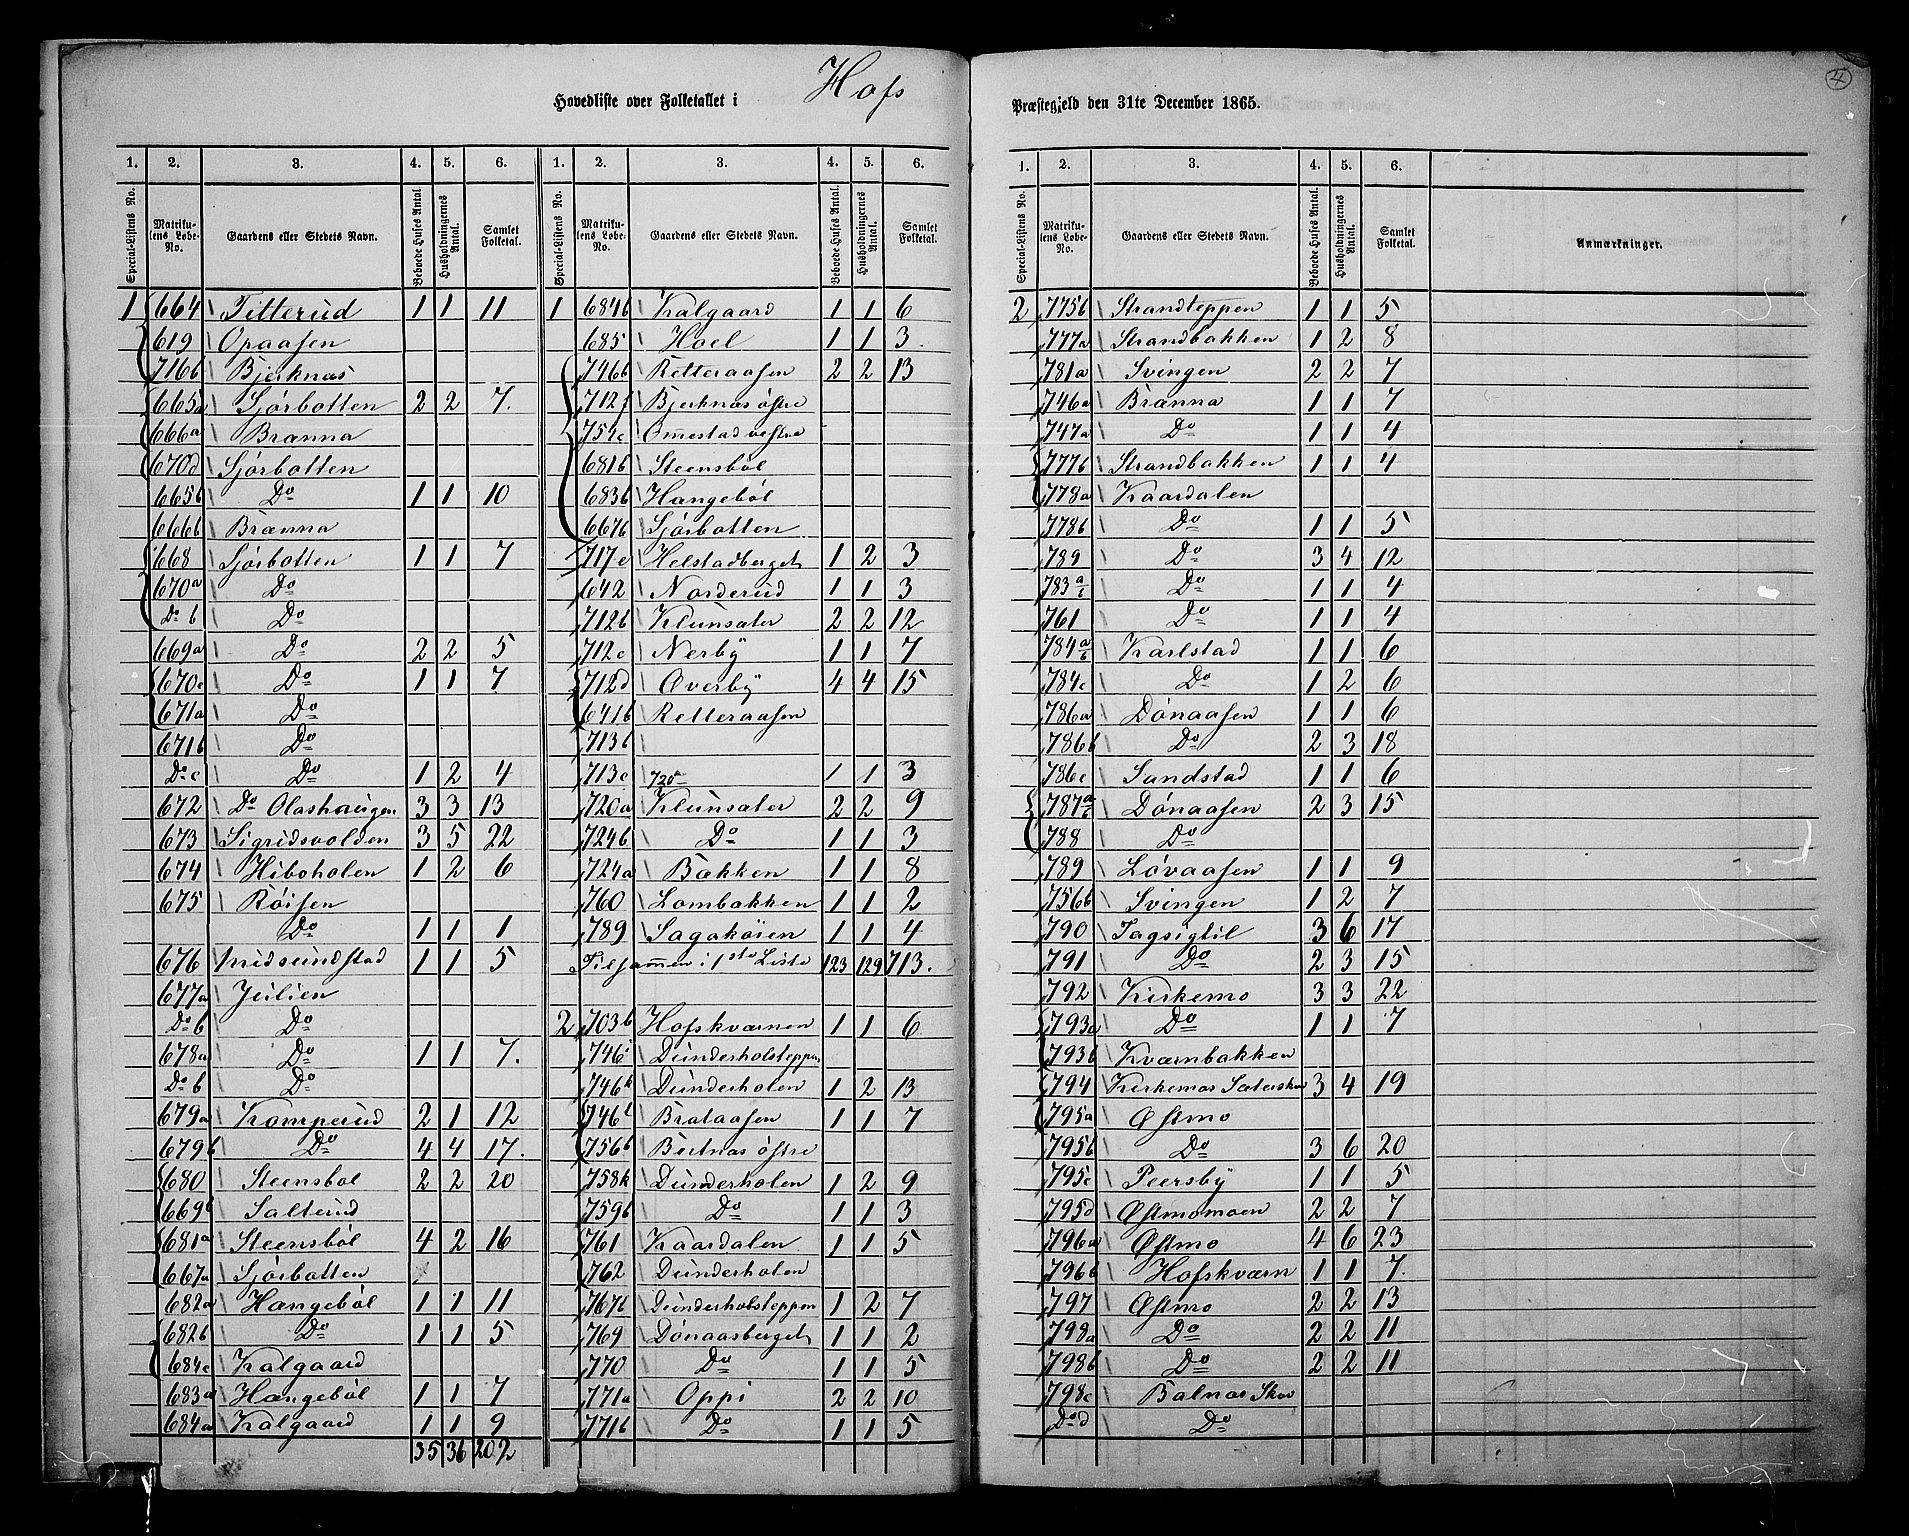 4
Hovedliste over Folketallet i Hofs Præstegjeld den 31te December 1865.
1. 2. 3. 4. 5. 6. 1. 2. 3. 4. 5. 6.
Special-Listens No. Matrikulens Løbe-No. Gaardens eller Stedets Navn. Beboede Huses Antal. Husholdningernes Antal. Samlet Folketal. Special-Listens No. Matrikulens Løbe-No. Gaardens eller Stedets Navn. Beboede Huses Antal. Husholdningernes Antal. Samlet Folketal.
1 664 Titterud 1 1 11
619 Opaasen
716b Bjerknæs
665a Sjørbotten 2 2 7.
666a Brænna
670d Sjørbotten
665b Do 1 1 10
666b Brænna
668 Sjørbotten 1 1 7
670a Do
Do b Do
669a Do 2 2 5
670c Do 1 1 7
671a Do
671b Do
Do c Do 1 2 4
672 Do Olashaugen 3 3 13
673 Sigridsvolden 3 5 22
674 Hiboholen 1 2 6
675 Røisen
Do 1 1 1
676 Midsundstad 1 1 5
677a Julien
Do b Do
678a Do 1 1 7.
Do b Do
679a Komperud 2 1 12
679b Do 4 4 17.
680 Steensbøl 2 2 20
669b Salterud
681a Steensbøl 4 2 16
667a Sjørbotten
682a Hængebøl 1 1 11
682b Do 1 1 5
684c Kalgaard
683a Hængebøl 1 1 7
684a Kalgaard 1 1 9
35 36 202
1 684b Kalgaard 1 1 6
685 Hoel 1 1 3.
746b Retteraasen 2 2 13
712f Bjerknæs østre
752c Ommestad vestre
681b Steensbøl
683b Hængebøl
667b Sjørbotten
717c Helstadberget 1 2 3
642 Norderud 1 1 3
712b Klunsæter 2 2 12
712c Nerby 1 1 7
712d Overby 4 4 15
641b Retteraasen
713b
713c 720 1 1 3
720a Klunsæter 2 2 9
724b Do 1 1 3
724a Bakken 1 1 8
760 Lombakken 1 1 2
789 Sagakøien 1 1 4
Tilsammen i 1ste Liste 123 129 713.
2 703b Hofskværnen 1 1 6
746i Dunderholsteppen
746k Dunderholen 1 2 13
746l Brataasen 1 1 7
756b Bertnæs østre
758k Dunderholen 1 2 9
759b Do 1 1 3
761 Kaardalen 1 1 5
762 Dunderholen
767b Dunderholsteppen 1 2 7
769 Dønaasberget 1 1 2
770 Do 1 1 5
771a Oppi 2 2 10
771b Do 1 1 5
1. 2. 3. 4. 5. 6.
Special-Listens No. Matrikulens Løbe-No. Gaardens eller Stedets Navn. Beboede Huses Antal. Husholdningernes Antal. Samlet Folketal. Anmærkninger.
2 775b Strandteppen 1 1 5
777a Strandbakken 1 2 8
781a Svingen 2 2 7
746a Brænna 1 1 7
747a Do 1 1 4
777b Strandbakken 1 1 4
778a Kaardalen
778b Do 1 1 5
789 Do 3 4 12
783 a/b Do 1 1 4
761 Do 1 1 4
784 a/b Karlstad 1 1 6
784c Do 1 2 6
786a Dønaasen 1 1 6
786b Do 2 3 18
786c Sandstad 1 1 6
787 a/b Dønaasen 2 3 15
788 Do
789 Løvaasen 1 1 9
756b Svingen 1 2 7
790 Fagsigtil 3 6 17
791 Do 2 3 15
792 Kirkemo 3 3 22
793a Do 1 1 7
793b Kværnbakken
794 Kirkemos Sæterskov 3 4 19
795a Østmo
795b Do 3 6 20
795c Peersby 1 1 5
795d Østmomoen 2 2 7
796a Østmo 4 6 23
796b Hofskværn 1 1 7.
797 Østmo 2 2 13
798a Do 2 2 11
798b Do 2 2 11
798c Balnæs Skov
Do d Do